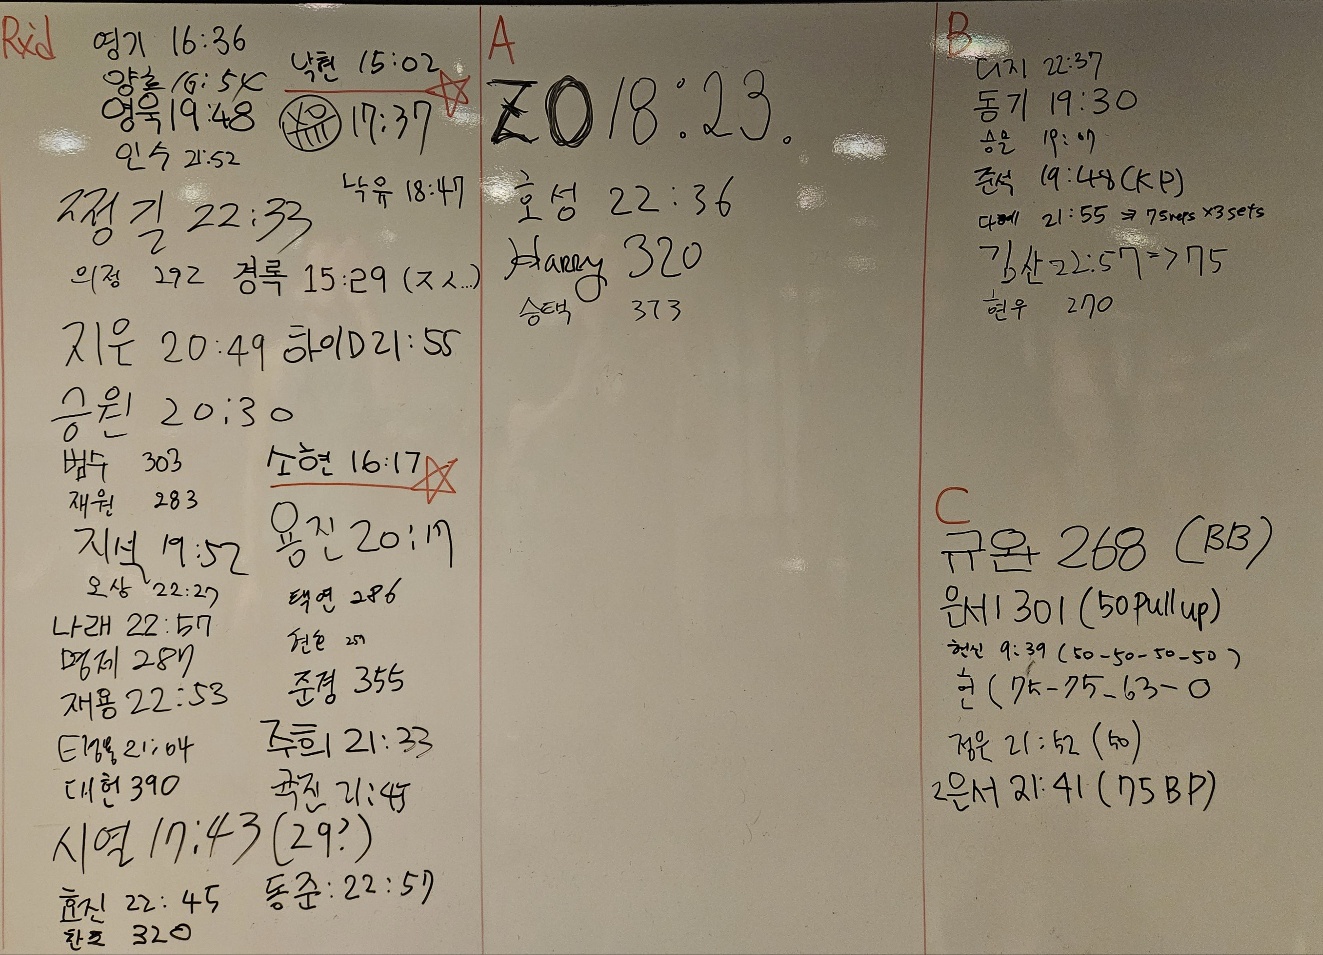 Rxd
영기 16:36
양호 16:54
영욱 19:48
인수 21:52
낙현 15:02
17:37
낙유 18:47
쩡길 22:33
의정 292
경록 15:29 (ㅈㅅ...)
지운 20:49
하이D 21:55
승원 20:30
범수 303
재원 283
소현 16:17
지석 19:52
용진 20:17
오상 22:27
나래 22:57
명제 287
재용 22:53
택연 286
준경 355
21:04
대헌 390
주희 21:33
국진 21:45
시열 17:43 (29?)
효진 22:45
동준: 22:57
찬호 320
A
ZO 18:23.
호성 22:36
Harry 320
승택 373
B
디지 22:37
동기 19:30
승운 19:07
준석 19:48 (KP)
다혜 21:55 => 75reps x3sets
김산 22:57 => 75
현우 270
C
규완 268 (BB)
은서1 301 (50 Pull up)
헌신 9:39 (50-50-50-50)
현 (75-75-63-0
정은 21:52 (50)
2은서 21:41 (75 BP)